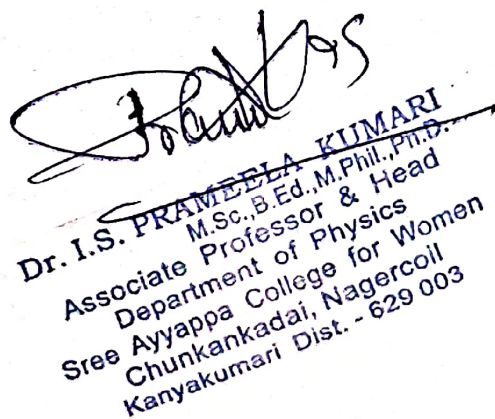 Dr. I.S. PRAMEELA KUMARI
M.Sc.,B.Ed.,M.Phil.,Ph.D.
Associate Professor & Head
Department of Physics
Sree Ayyappa College for Women
Chunkankadai, Nagercoil
Kanyakumari Dist. - 629 003